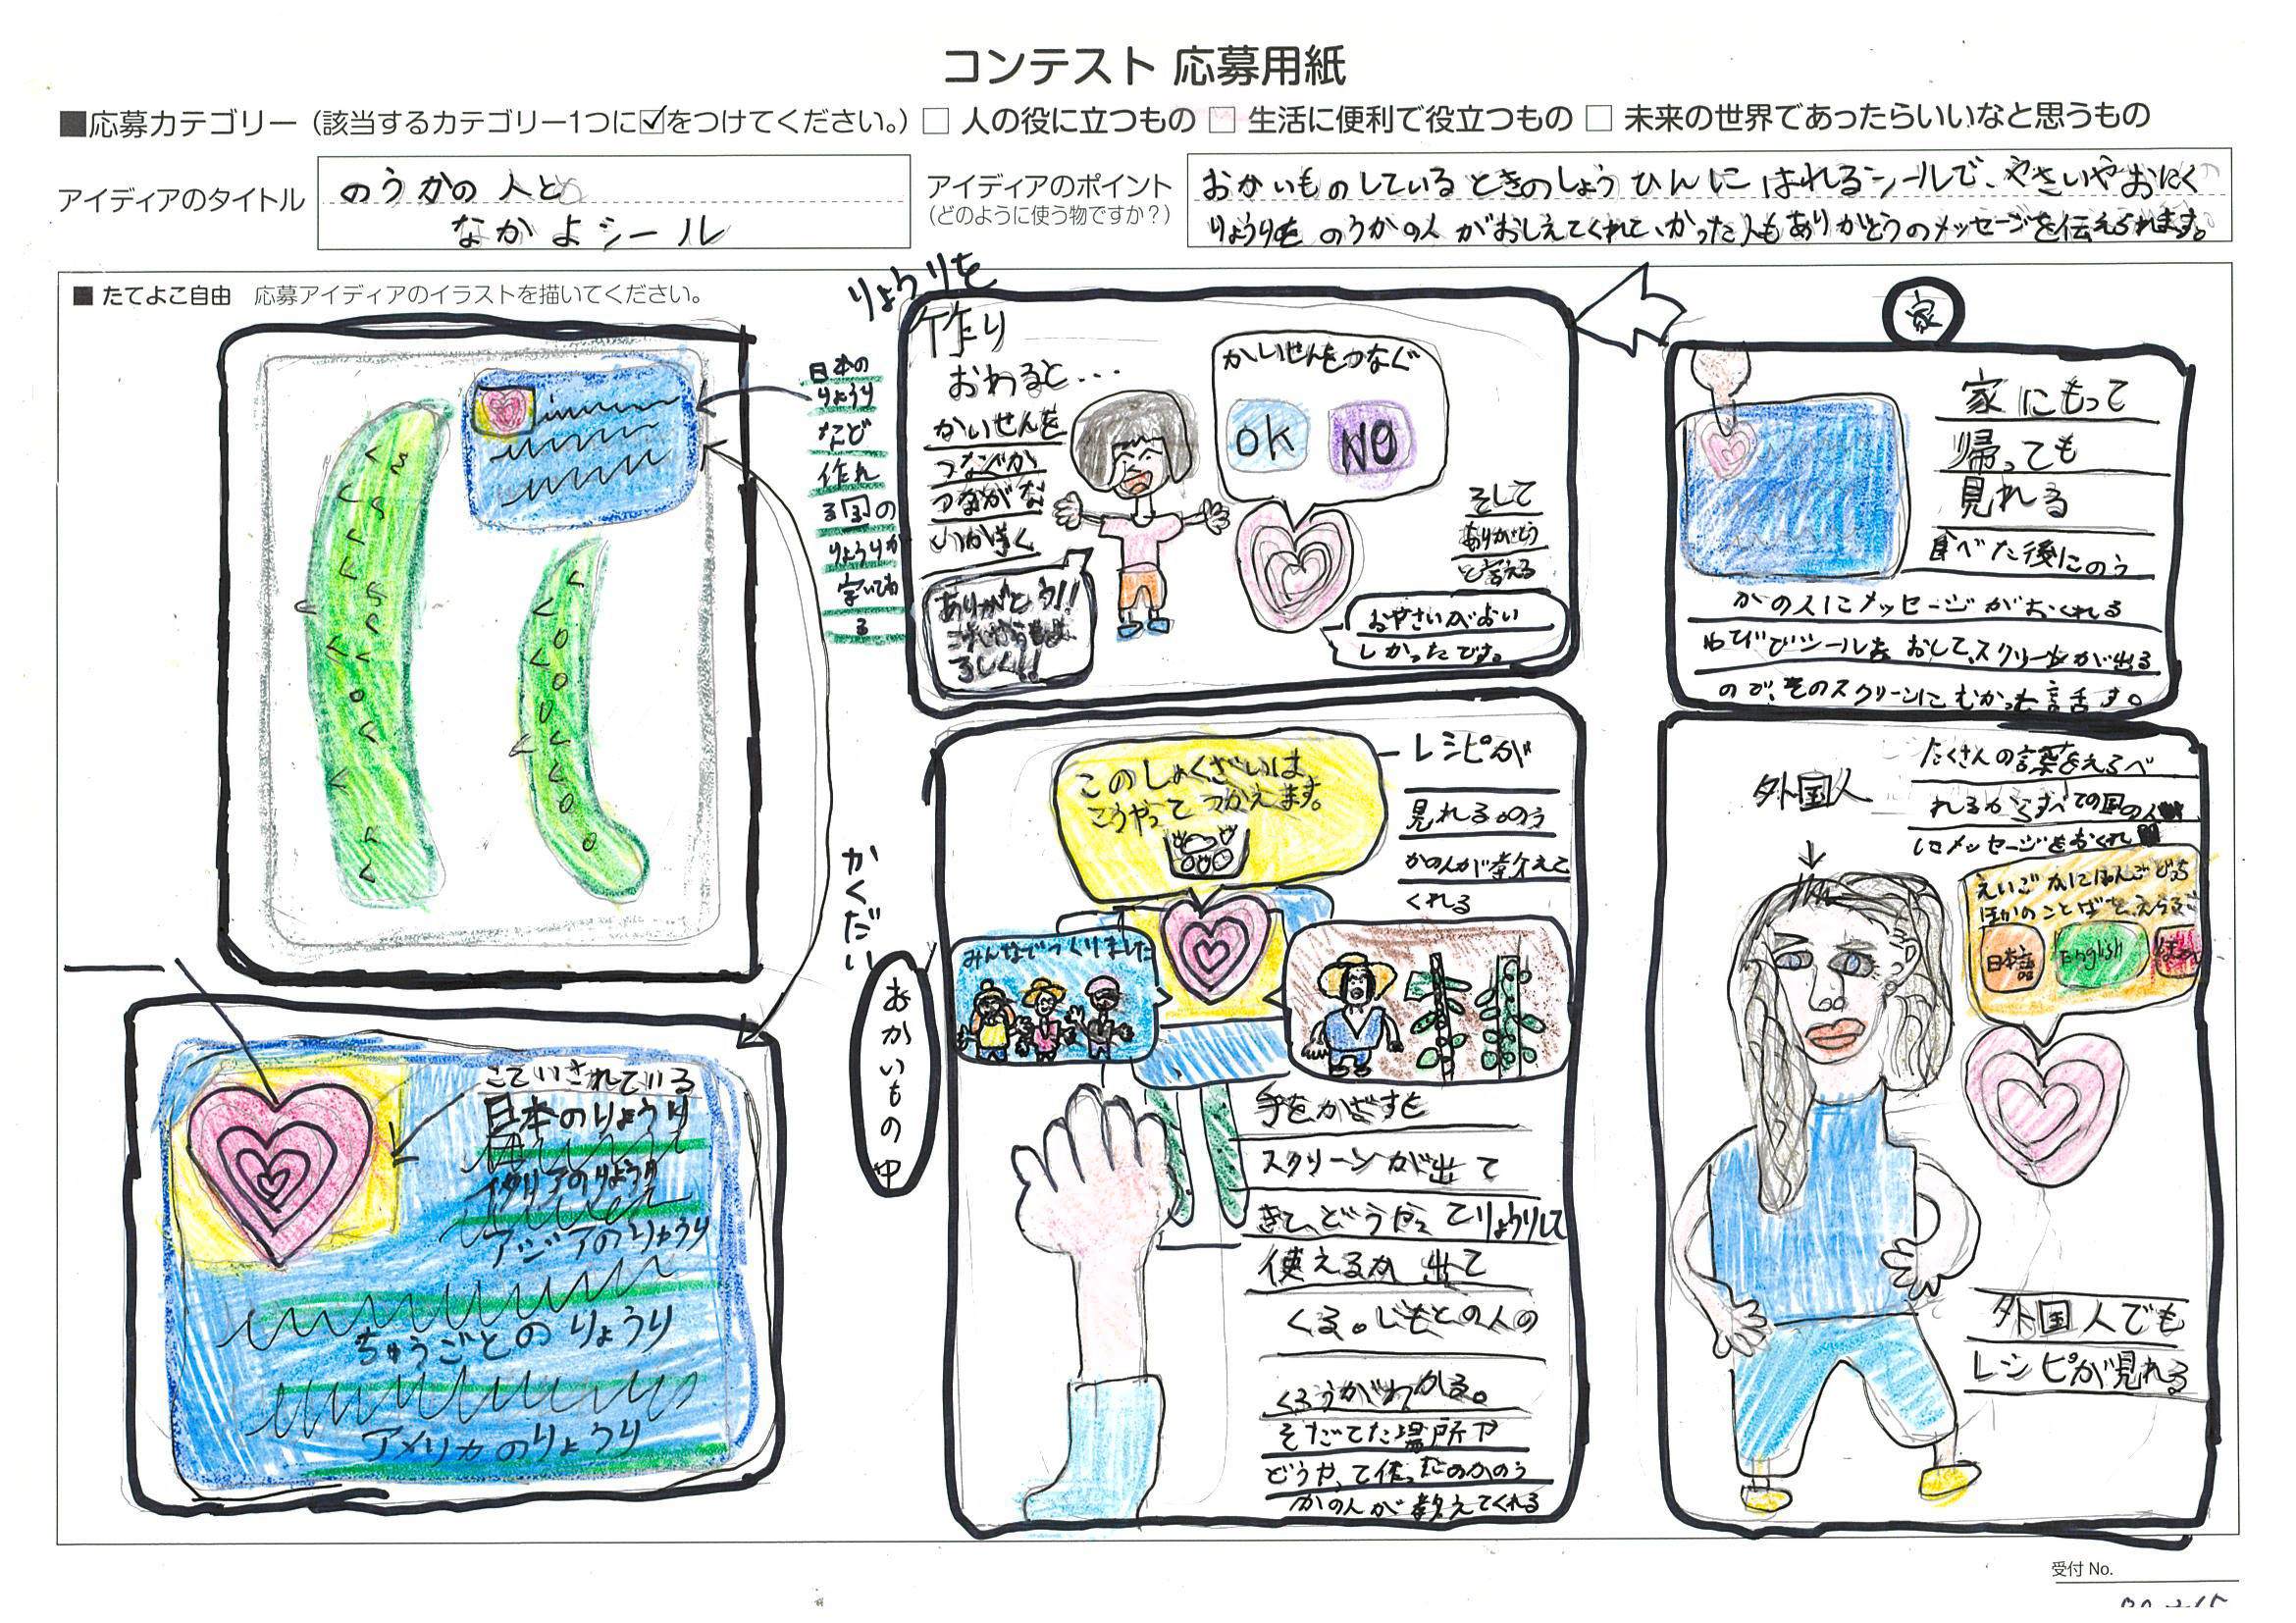 コンテスト 応募用紙
■応募カテゴリー（該当するカテゴリー1つに☑をつけてください。）□ 人の役に立つもの □ 生活に便利で役立つもの □ 未来の世界であったらいいなと思うもの
アイディアのタイトル
のうかの人と
なかよシール
アイディアのポイント
（どのように使う物ですか？）
おかいものしているときのしょうひんにはれるシールで、やさいやおにく
りょうりを のうかの人がおしえてくれて、かった人もありがとうのメッセージを伝えられます。
■ たてよこ自由 応募アイディアのイラストを描いてください。
日本の
りょうり
など
作れ
る国の
りょうりが
字いてあ
る
かくだい
こていされている
日本のりょうり
イタリアのりょうり
アジアのりょうり
ちゅうごとのりょうり
アメリカのりょうり
りょうりを
作り
おわると...
かいせんを
つなぐか
つながな
いかきく
ありがとう!!
これからもよ
ろしく!!
かいせんをつなぐ
OK
NO
そして
ありがとう
と言える
おやさいがおい
しかったです。
家
家にもって
帰っても
見れる
食べた後にのう
かの人にメッセージがおくれる
ゆびでシールを おして、スクリーンが出る
ので、そのスクリーンにむかって話す。
おかいもの中
このしょくざいは
こうやって つかえます。
レシピが
見れる。のう
かの人が教えて
くれる
みんなでつくりました
手をかざすと
スクリーンが出て
きて、どうやってりょうりして
使えるか 出て
くる。じもとの人の
くろうがわかる。
そだてた場所や
どうやって作ったのかのう
かの人が教えてくれる
外国人
たくさんの言葉をえらべ
れるからすべての国の人
にメッセージをおくれ
えいごかにほんごどっち
ほかのことばをえらぶ
日本語
English
ほか
外国人でも
レシピが見れる
受付 No.